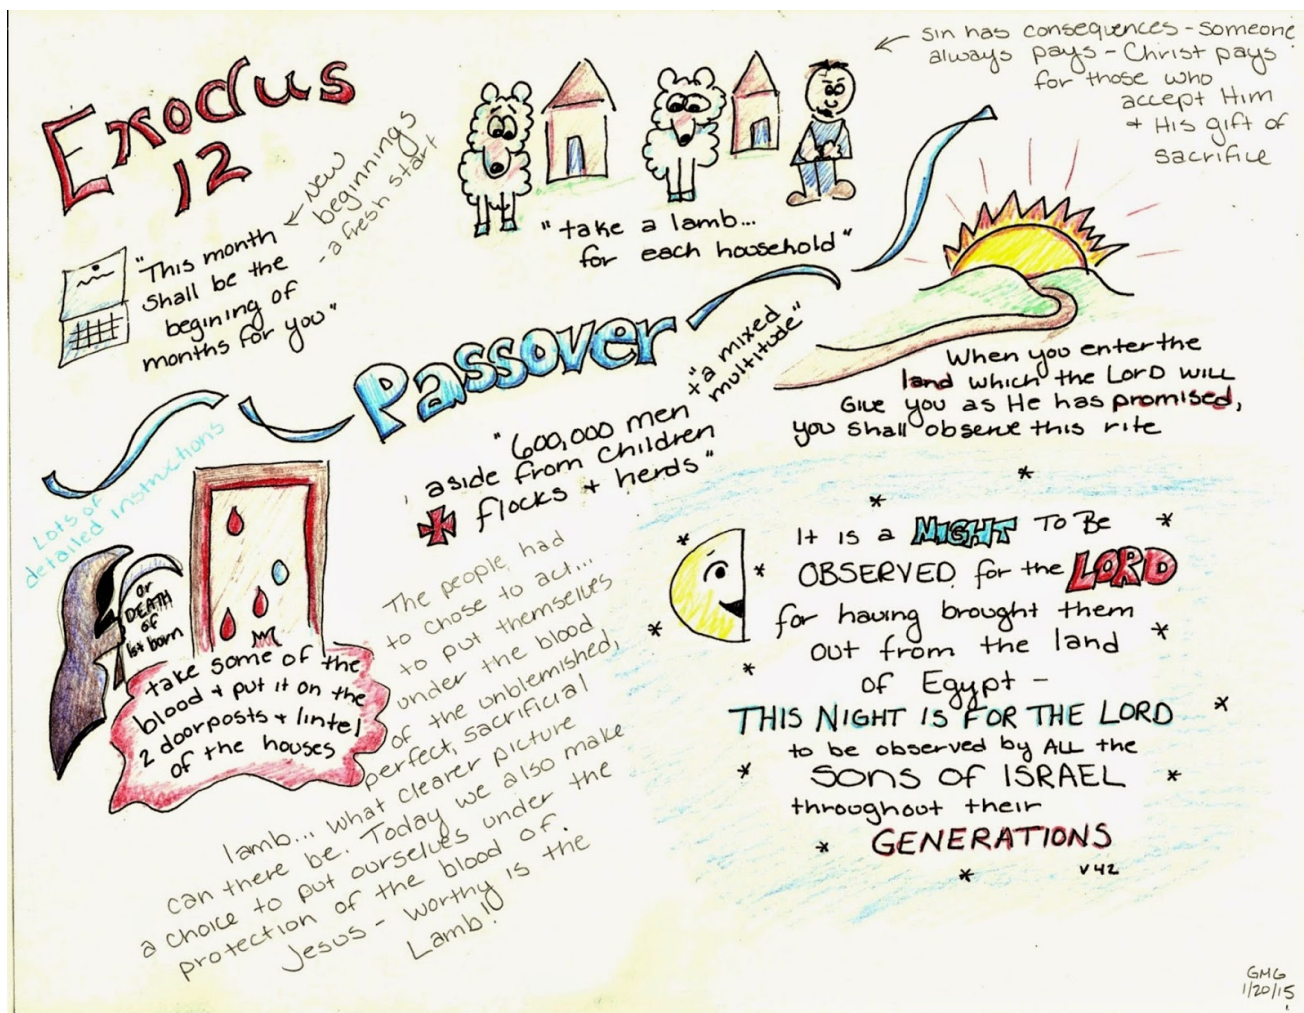 Exodus
12
← New
beginnings
- a fresh start
"This month
shall be the
begining of
months for you"
"take a lamb...
for each household"
← sin has consequences - someone
always pays - Christ pays
for those who
accept Him
+ His gift of
sacrifice
Passover
"600,000 men + "a mixed
multitude"
aside from children
flocks + herds"
When you enter the
land which the LORD WILL
Give you as He has promised,
you shall observe this rite
Lots of
detailed instructions
or
DEATH
of
1st born
take some of the
blood + put it on the
2 doorposts + lintel
of the houses
The people had
to chose to act...
to put themselves
under the blood
of the unblemished,
perfect, sacrificial
lamb... what clearer picture
can there be. Today we also make
a choice to put ourselves under the
protection of the blood of
Jesus - worthy is the
Lamb!
It is a NIGHT TO BE
OBSERVED for the LORD
for having brought them
out from the land
of Egypt -
THIS NIGHT IS FOR THE LORD
to be observed by ALL the
SONS OF ISRAEL
throughout their
GENERATIONS
v 42
GMG
1/20/15